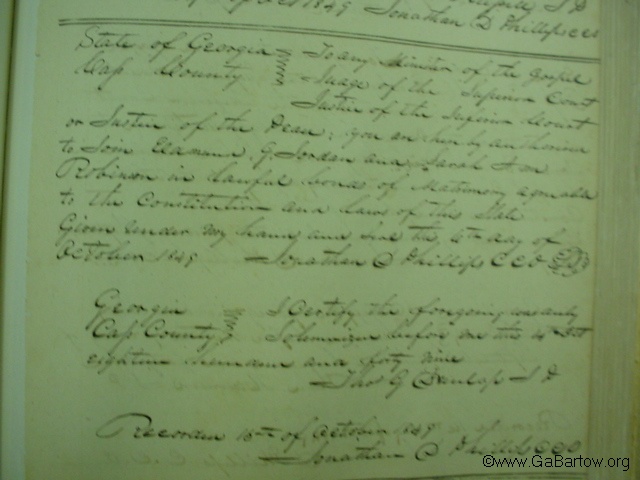 of Oct 1849 Jonathan D Phillips CCO
State of Georgia To any Minister of the Gospel
Cass County Judge of the Superior Court
Justice of the Inferior Court
or Justice of the Peace; You are hereby authorised
to Join Edmund G. Jordan and Sarah Ann
Robinson in lawful bonds of Matrimony agreeable
to the Constitution and Laws of this State
Given under my hand and seal the 4th day of
October 1849 Jonathan D Phillips CCO
Georgia I Certify the foregoing was duly
Cass County Solemnized before me this 4th Oct
eighteen hundred and forty nine
Thos G Dunlap J P
Recorded 15th of October 1849
Jonathan D Phillips CCO
©www.GaBartow.org